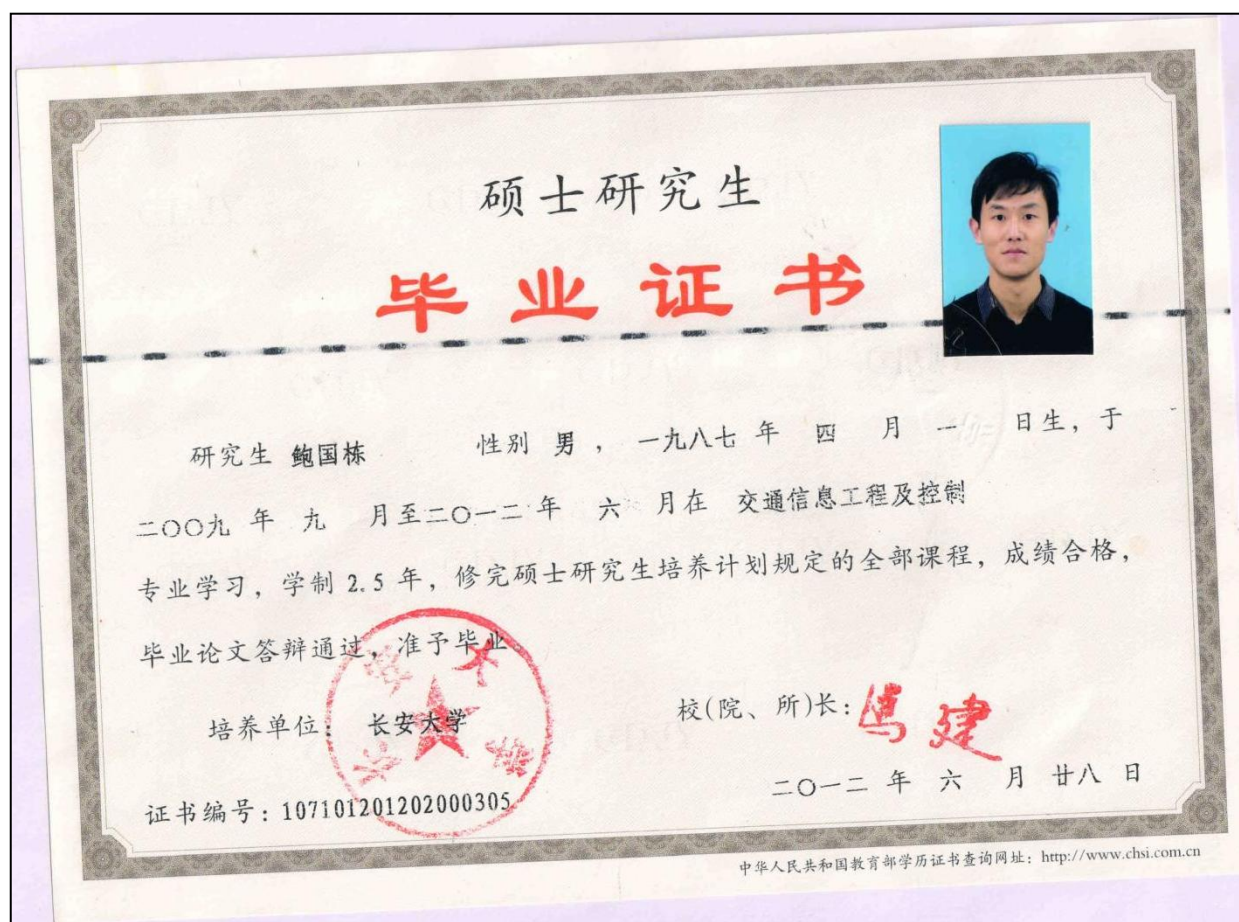 硕士研究生
毕业证书
研究生 鲍国栋 性别 男 ， 一九八七 年 四 月 一 日生，于
二〇〇九 年 九 月至二〇一二 年 六 月在 交通信息工程及控制
专业学习，学制 2.5 年，修完硕士研究生培养计划规定的全部课程，成绩合格，
毕业论文答辩通过，准予毕业
培养单位： 长安大学
校(院、所)长：马建
二〇一二 年 六 月 廿八 日
证书编号：107101201202000305
中华人民共和国教育部学历证书查询网址：http://www.chsi.com.cn